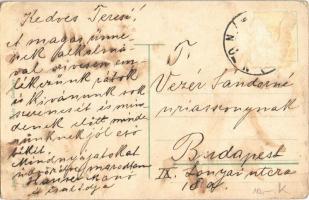 Kedves Terus!
A magas ünne-
nek alkalmá-
val szivesen em-
lékezünk rátok
és kivánunk sok
szerencsét és min
denek előtt minde
nünknek jól eső
békét.
Mindnyájatokat
üdvözölve maradtam
és családja
T.
Vezér Sándorné
uriasszonynak
Budapest
IX. Lónyai utcza
18